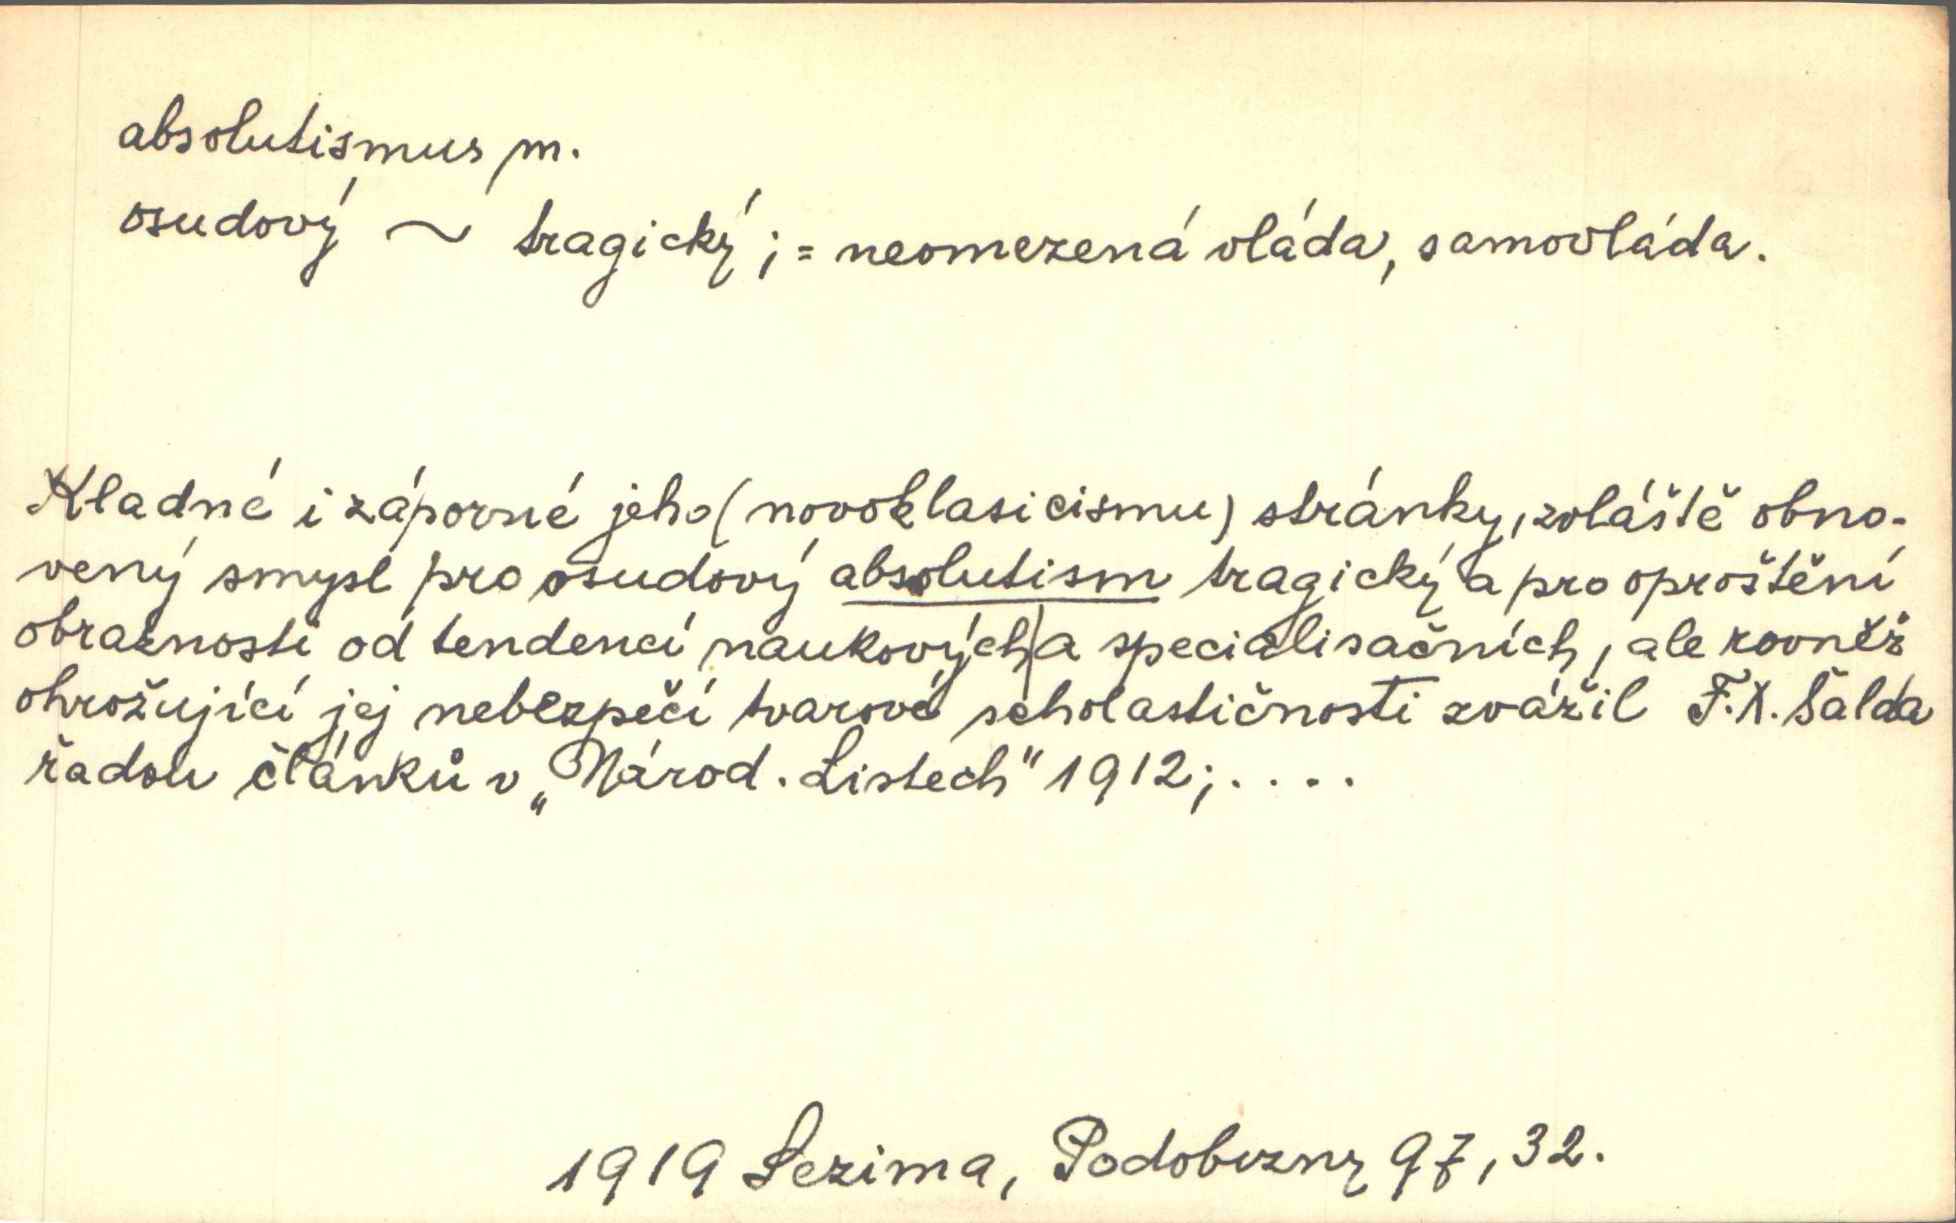 absolutismus m.
osudový ~ tragický; = neomezená vláda, samovláda.
Kladné i záporné jeho (novoklasicismu) stránky, zvláště obno-
vený smysl pro osudový absolutism tragický a pro oproštění
obraznosti od tendencí naukových a specialisačních, ale rovněž
ohrožující jej nebezpečí tvarové scholastičnosti zvážil F. X. Šalda
řadou článků v „Národ. Listech" 1912; ....
1919 Sezima, Podobizny 97, 32.